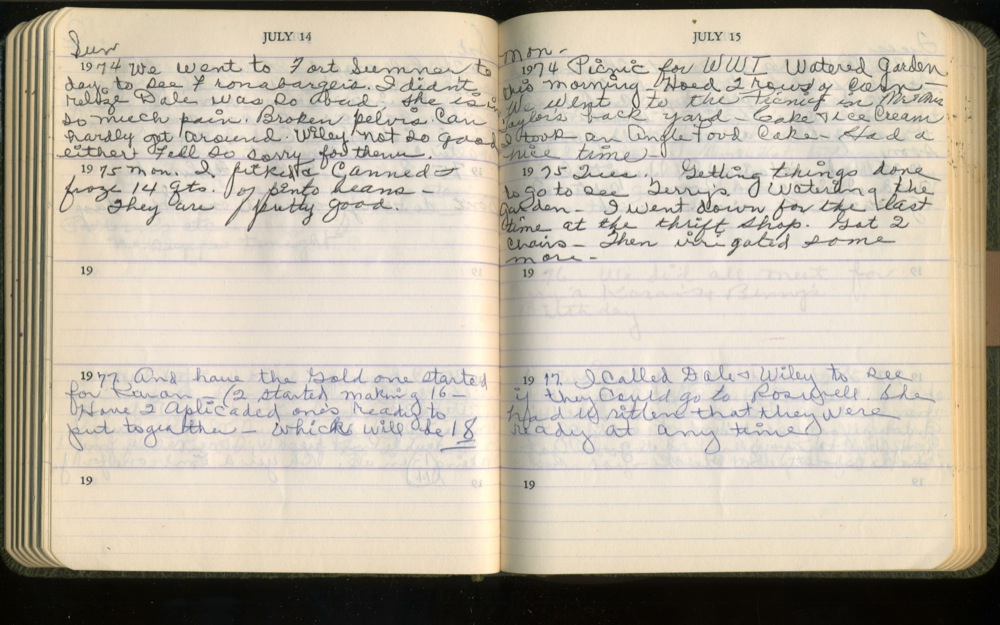 JULY 14
Sun
1974 We went to Fort Sumner to
day to see Fronabargers. I didn't
relize Dale was so bad. She is in
so much pain. Broken pelvis. Can
hardly get around. Wiley not so good
either Fell so sorry for them.
1975 Mon. I picked & Canned &
froze 14 qts. of pinto beans –
They are pretty good.
19
1977 And have the Gold one started
for (2 started making 16 –
Have 2 Aplicaded ones ready to
put togeather – which will be 18
19
JULY 15
Mon –
1974 Picnic for WWI Watered Garden
this morning. Hoed 2 rows of Corn
We went to the Picnic in Mr & Mrs
Taylors back yard – Cake & ice Cream
I took an Angle Food Cake – Had a
nice time –
1975 Tues. Getting things done
to go to see Terrys. Watering the
Garden – I went down for the last
time at the thrift shop. Got 2
Chairs – Then irrigated some
more –
19 76 We did all meet for
Benny's
Birthday
1977 I Called Dale & Wiley to see
if they could go to Roswell. She
had written that they were
ready at any time
19